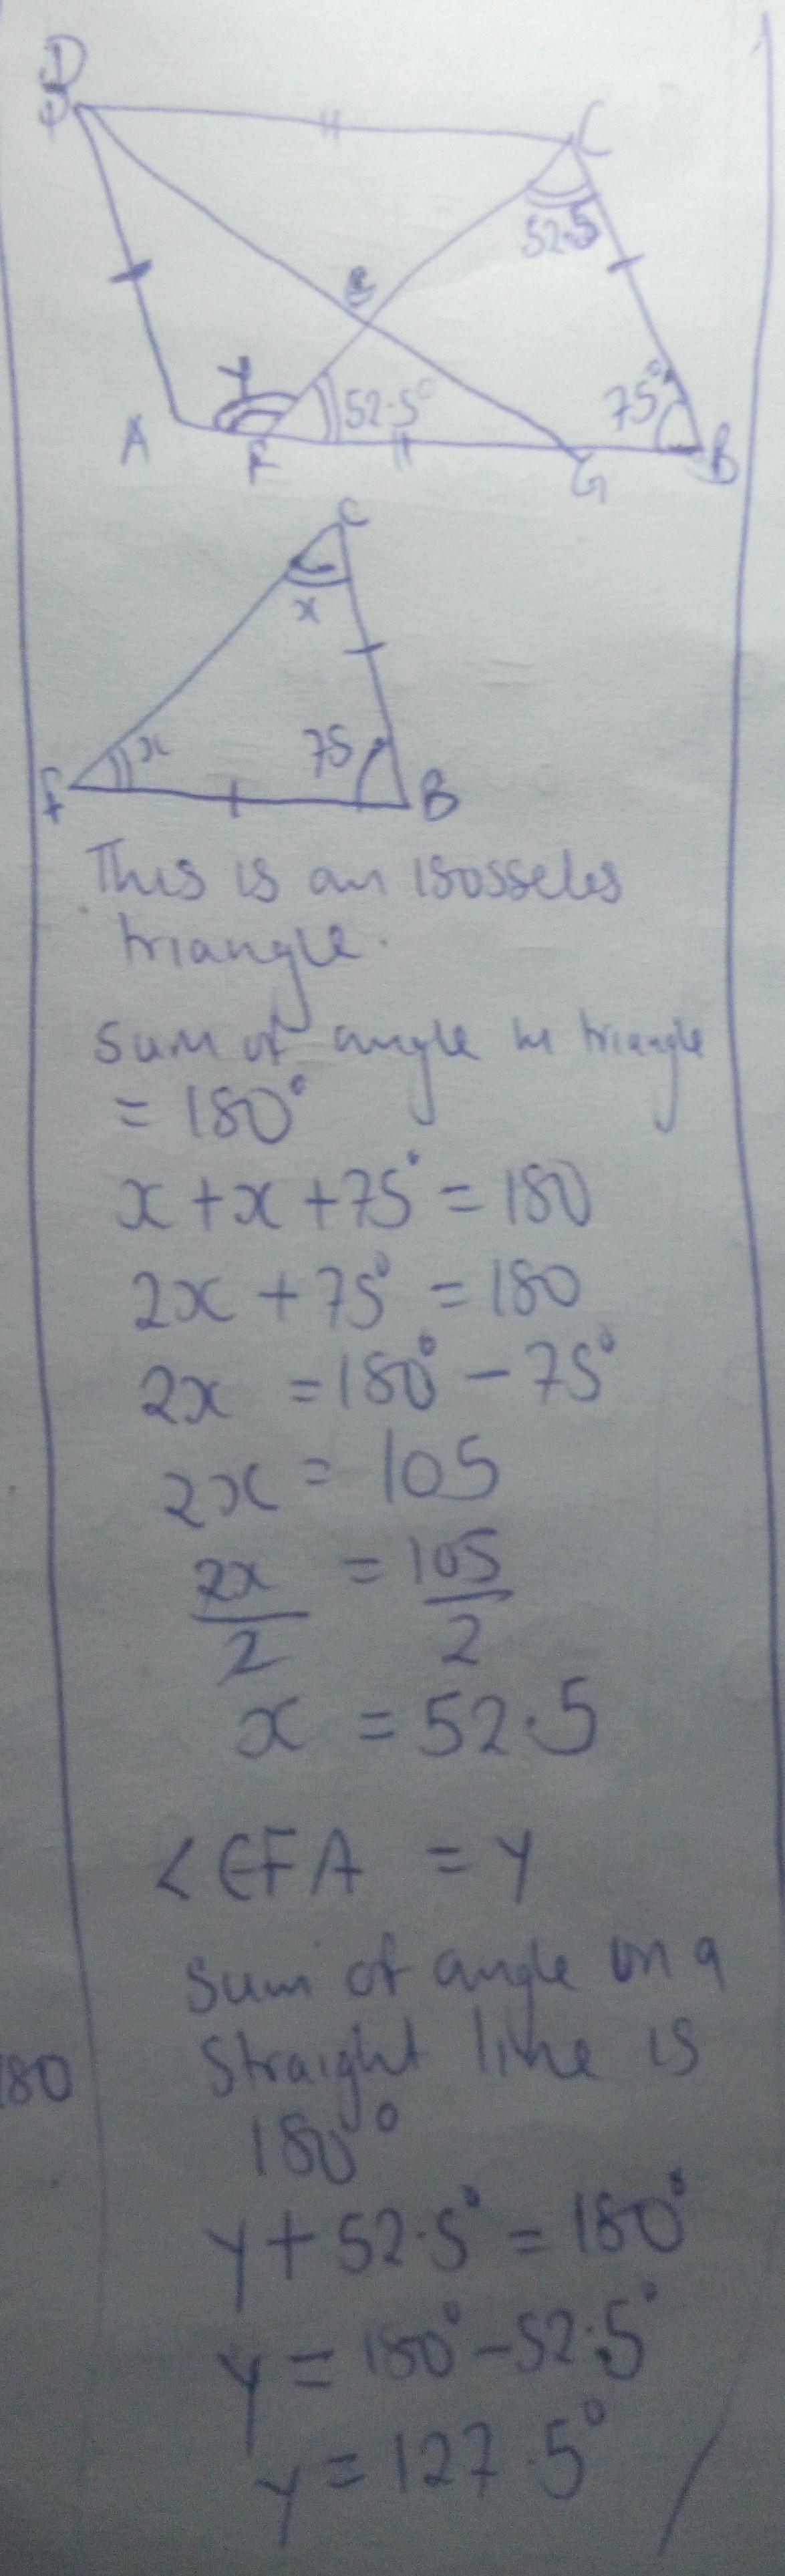 D
C
52.5
E
Y
52.5°
75°
A
F
G
B
C
x
x
75
F
B
This is an isosseles
triangle.
Sum of angle in triangle
= 180°
x + x + 75° = 180
2x + 75° = 180
2x = 180° - 75°
2x = 105
2x/2 = 105/2
x = 52.5
< EFA = Y
Sum of angle on a
Straight line is
180°
180
y + 52.5° = 180°
y = 180° - 52.5°
y = 127.5°